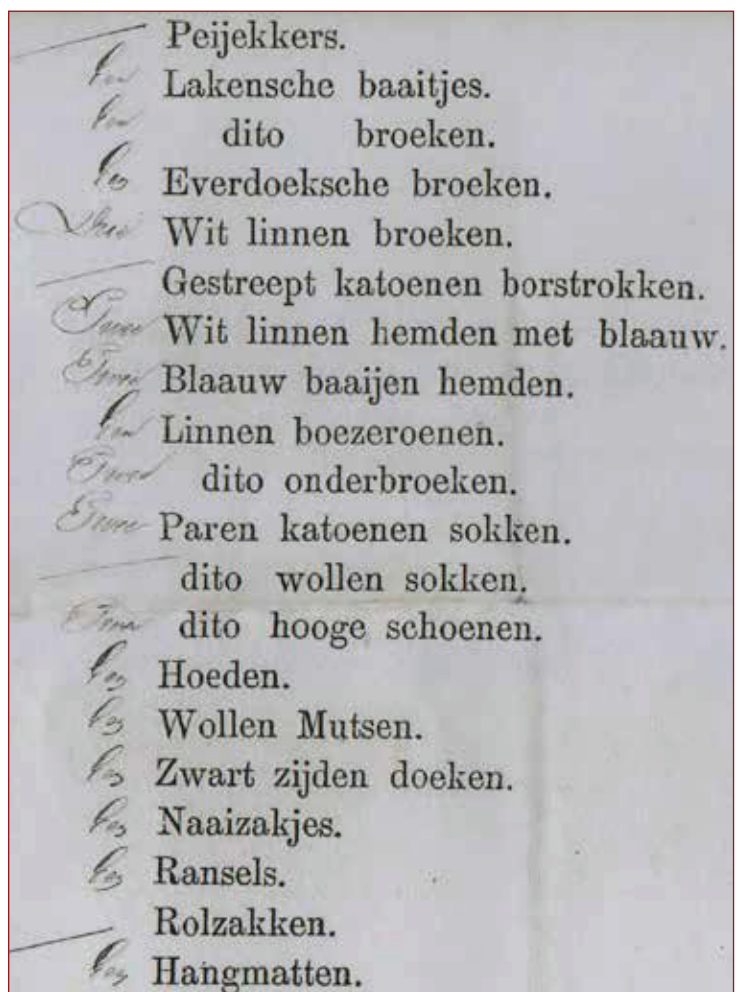 — Peijekkers.
Een Lakensche baaitjes.
Een dito broeken.
Een Everdoeksche broeken.
Drie Wit linnen broeken.
— Gestreept katoenen borstrokken.
Twee Wit linnen hemden met blaauw.
Twee Blaauw baaijen hemden.
Een Linnen boezeroenen.
Twee dito onderbroeken.
Twee Paren katoenen sokken.
— dito wollen sokken.
Twee dito hooge schoenen.
Een Hoeden.
Een Wollen Mutsen.
Een Zwart zijden doeken.
Een Naaizakjes.
Een Ransels.
— Rolzakken.
Een Hangmatten.